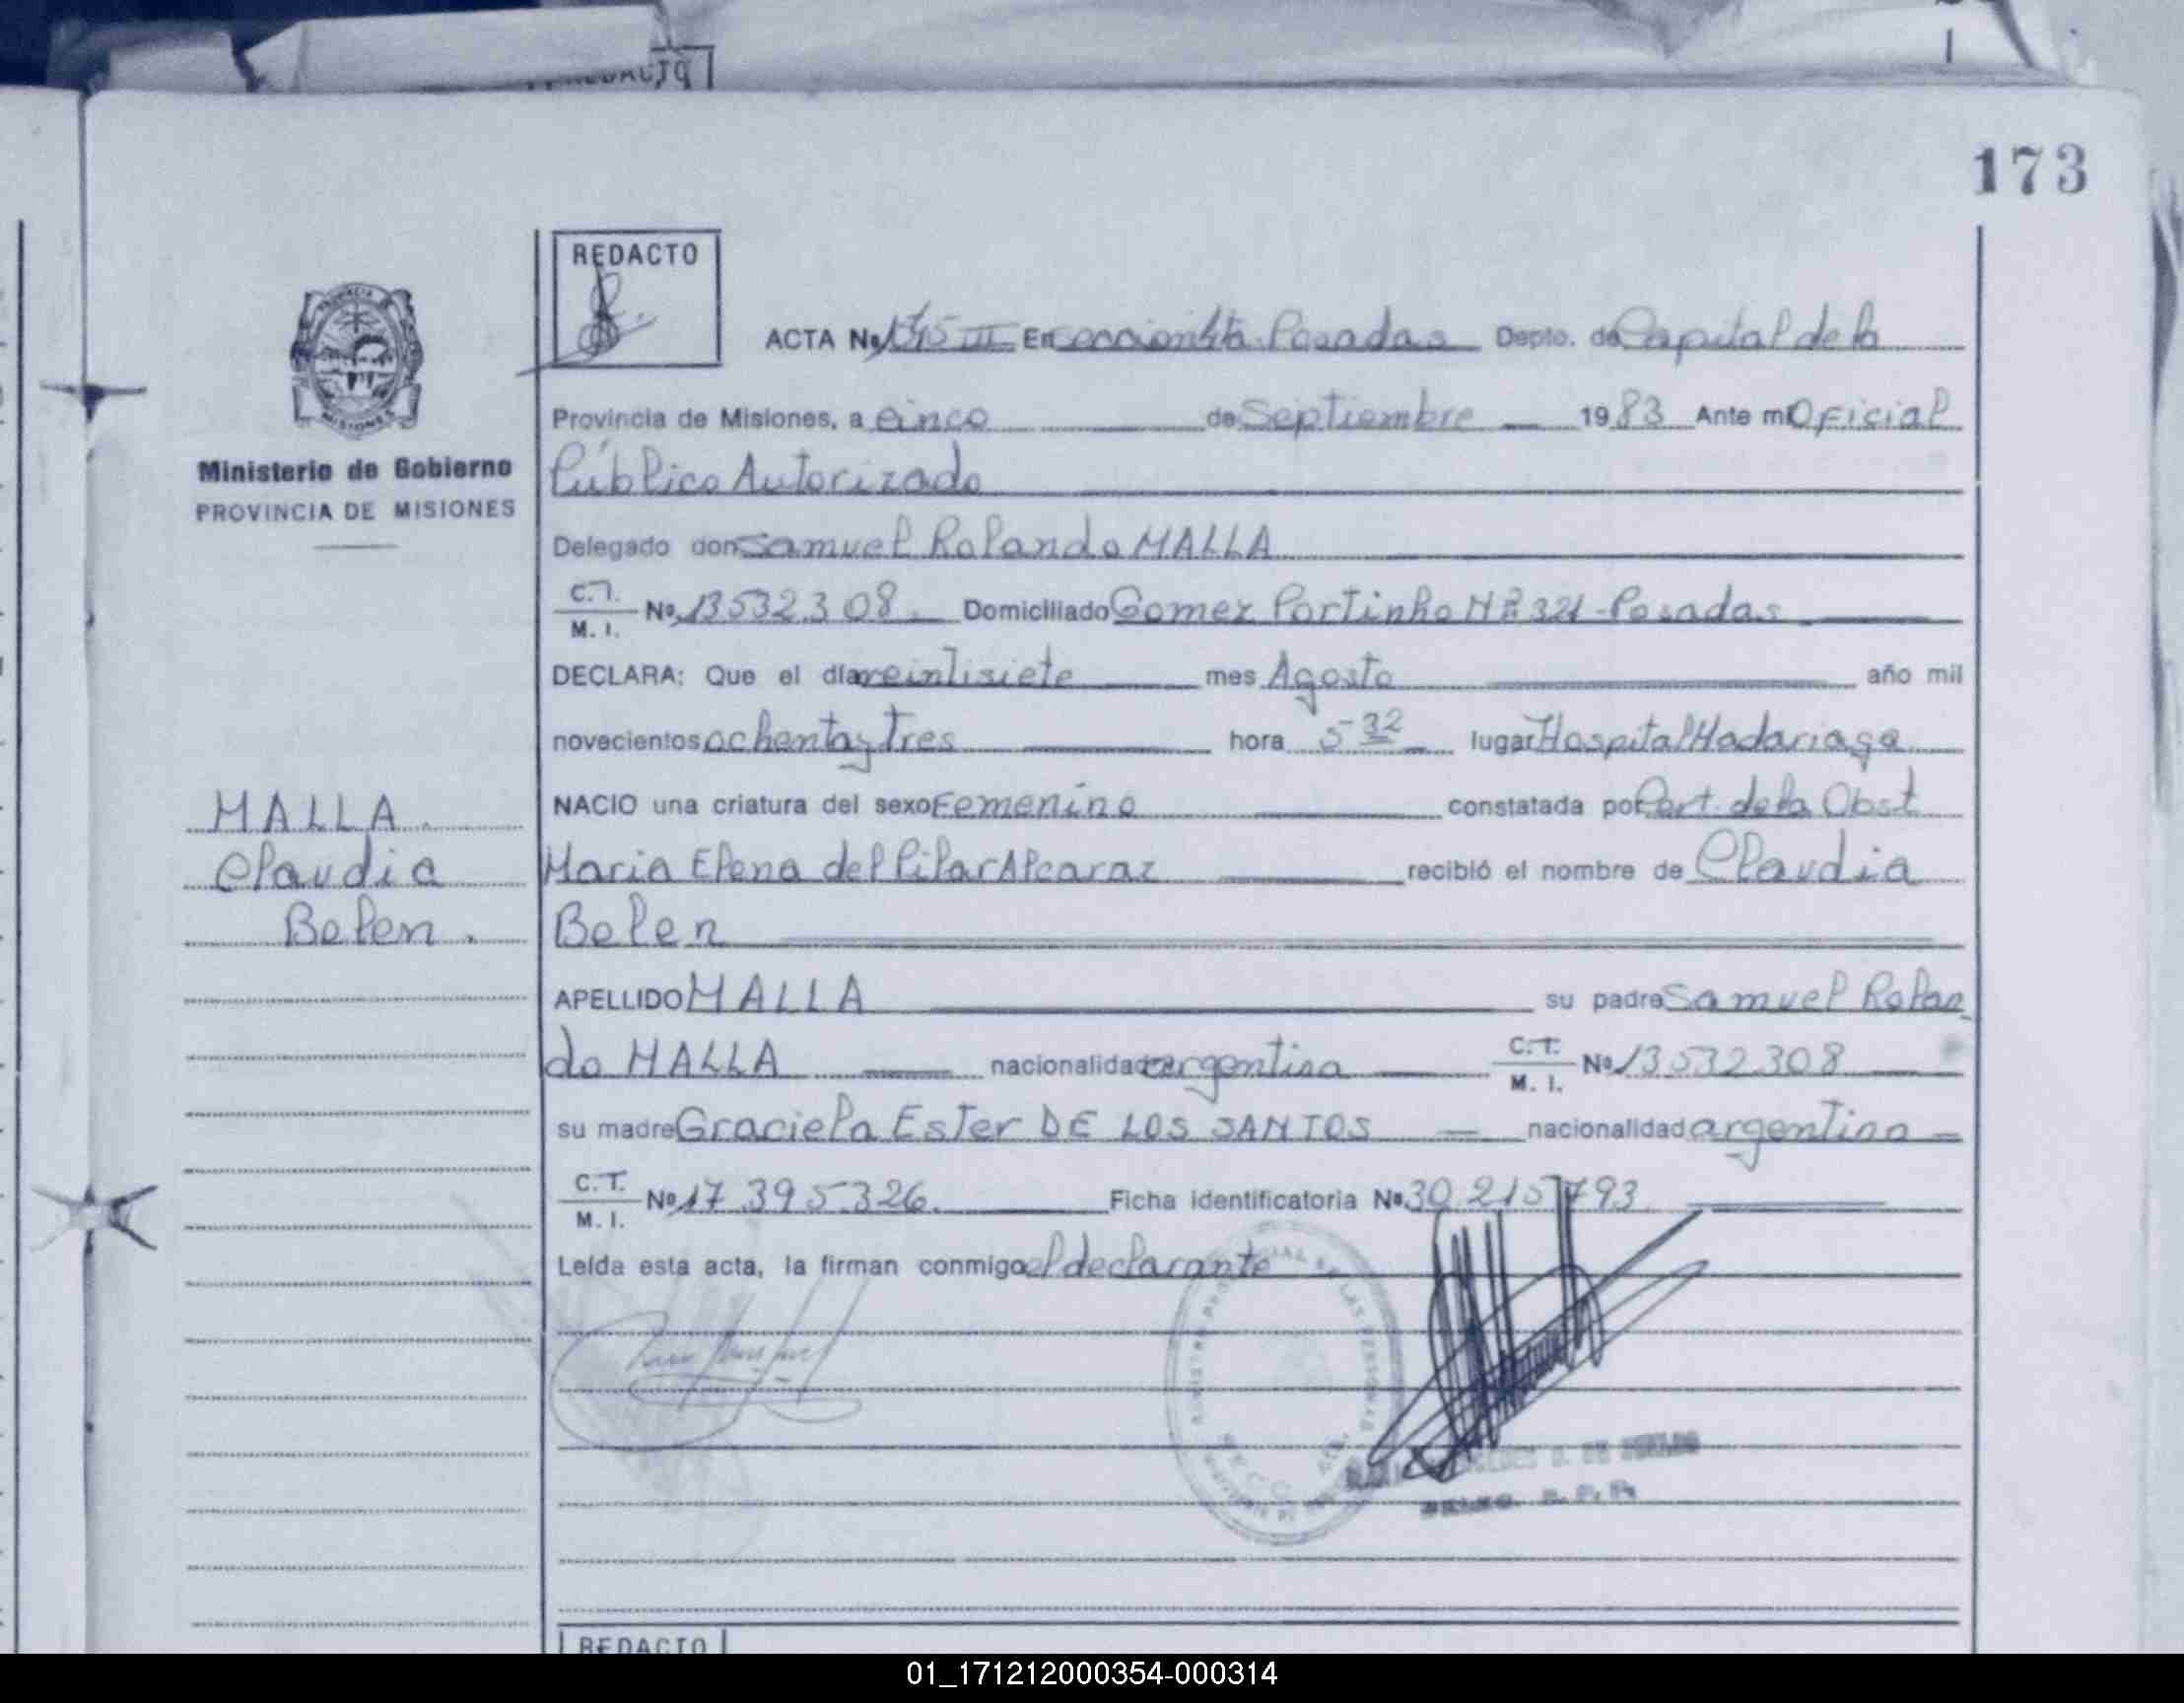 REDACTO
173
REDACTO
PROVINCIA DE
MISIONES
Ministerio de Gobierno
PROVINCIA DE MISIONES
ACTA Nº 1345 III En Seccion 4ta. Posadas Depto. de Capital de la
Provincia de Misiones, a cinco de Septiembre 1983 Ante mi Oficial
Público Autorizado
Delegado don Samuel Rolando MALLA
C.I. M. I. Nº 13532.308. Domiciliado Gomez Portinho Nº 321-Posadas
DECLARA: Que el día veintisiete mes Agosto año mil
novecientos ochenta y Tres hora 5 32 lugar Hospital Madariaga
NACIO una criatura del sexo Femenino constatada por Cert. de la Obst
Maria Elena del Pilar Alcaraz recibió el nombre de Claudia
Belen
APELLIDO MALLA su padre Samuel Rolan
do MALLA nacionalidad argentina C.I. M. I. Nº 13532308
su madre Graciela Ester DE LOS SANTOS nacionalidad argentina
C.I. M. I. Nº 17.395.326. Ficha identificatoria Nº 30.215.793
Leída esta acta, la firman conmigo el declarante
MALLA.
Claudia
Belen.
REDACTO
01_171212000354-000314